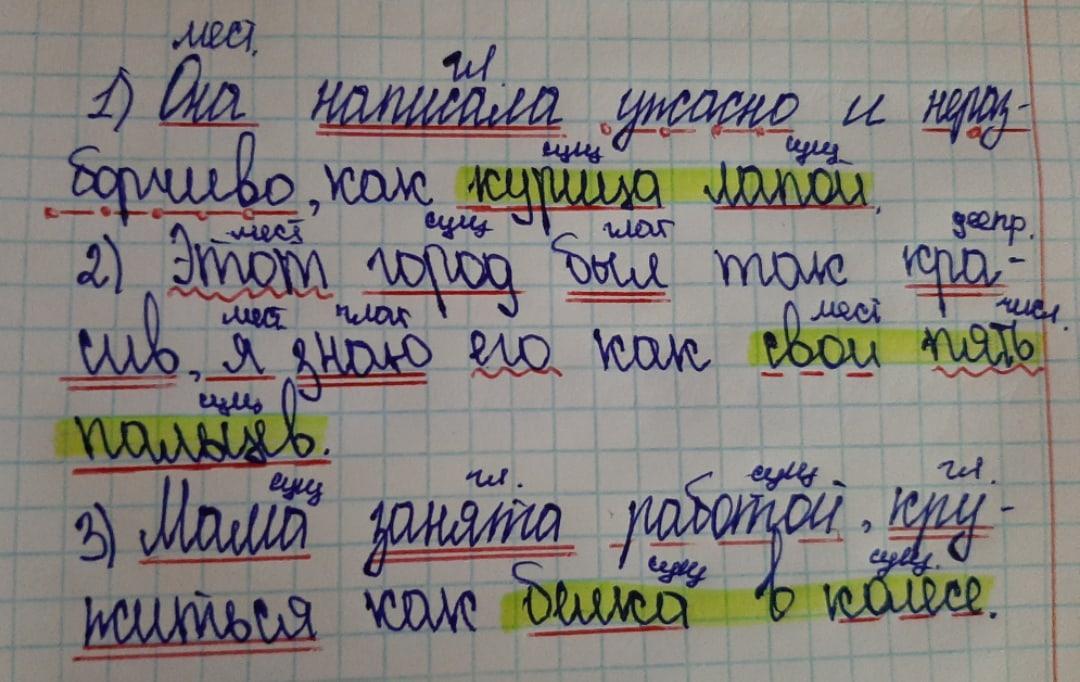 мест. гл
1) Она написала ужасно и нераз-
сущ сущ
борчиво, как курица лапой.
мест сущ глаг деепр.
2) Этот город был так кра-
мест глаг мест числ.
сив, я знаю его как свои пять
сущ
пальцев.
сущ гл. сущ гл.
3) Мама занята работой, кру-
сущ сущ.
житься как белка в колесе.